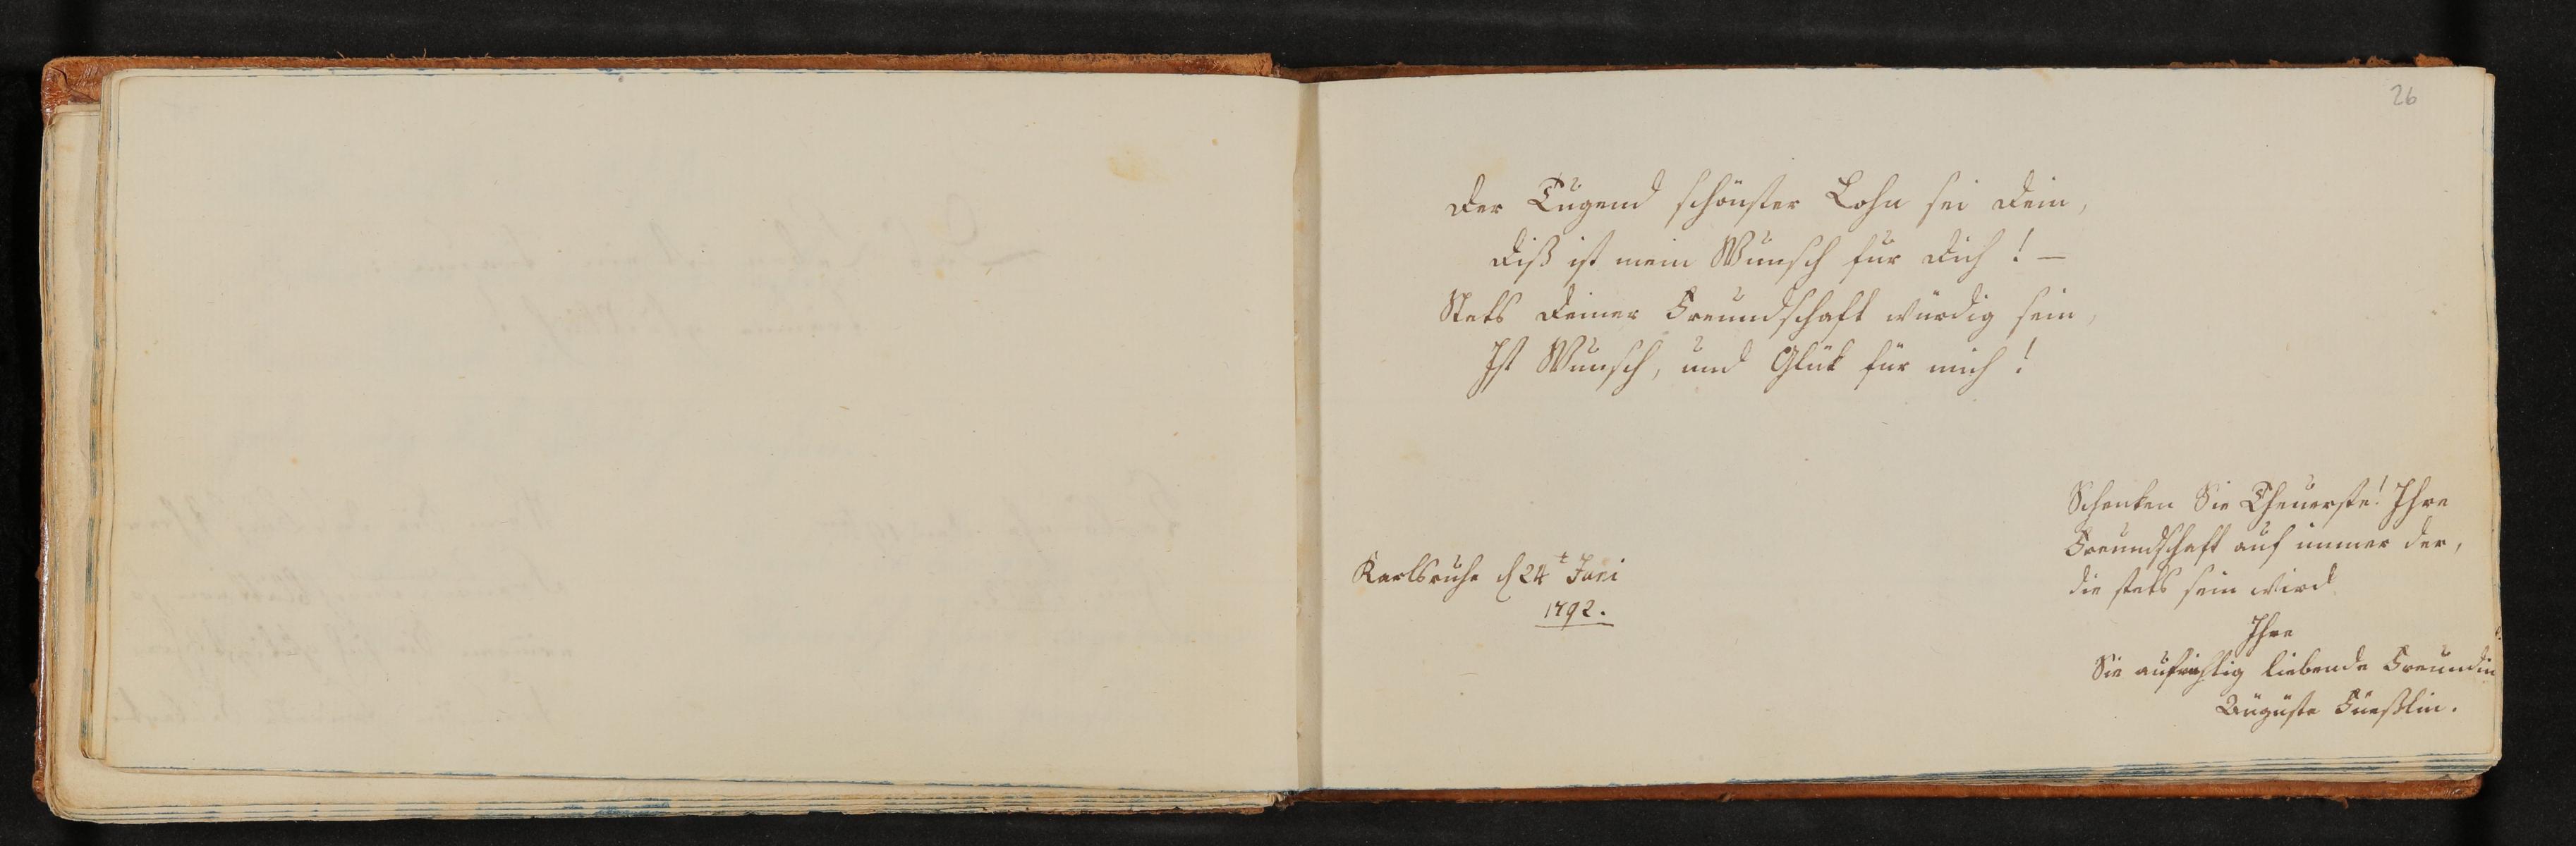 26
Der Tugend schönster Lohn sei Dein,
Diß ist mein Wunsch für Dich! –
Stets Deiner Freundschaft würdig sein,
Ist Wunsch, und Glük für mich!
Schenken Sie Theuerste! Ihre
Freundschaft auf immer der,
die stets sein wird
Ihre
Sie aufrichtig liebende Freundin
Auguste Fueßlin.
Karlsruhe d 24t Juni
1792.